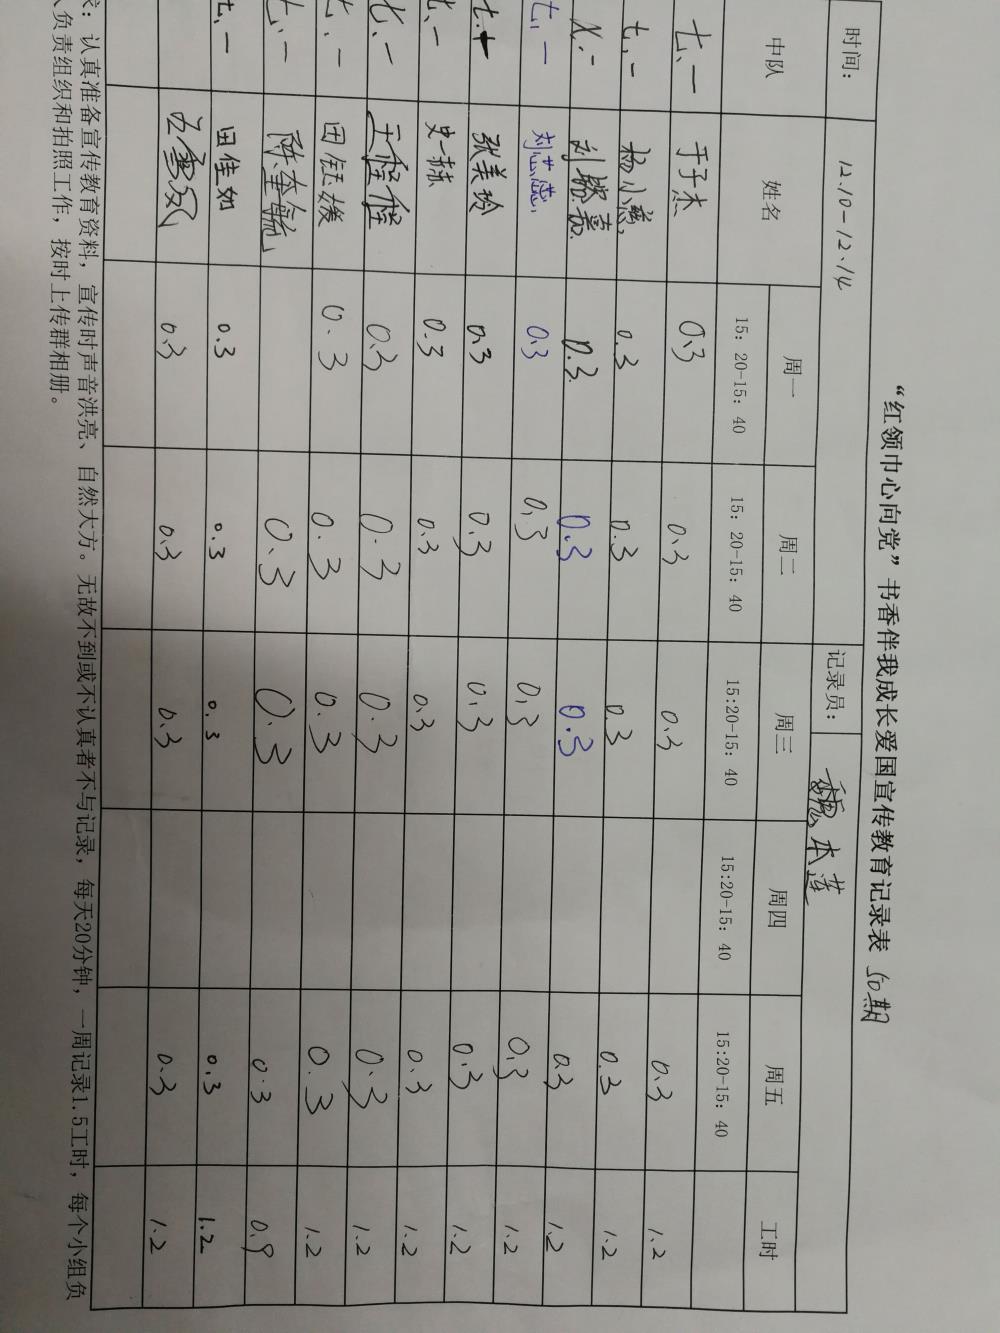 “红领巾心向党”书香伴我成长爱国宣传教育记录表 50期
时间: 12.10-12.14 记录员: 魏本莲
中队 姓名 周一 周二 周三 周四 周五 工时
15: 20-15: 40 15: 20-15: 40 15:20-15: 40 15:20-15: 40 15:20-15: 40
七、一 于子杰 0.3 0.3 0.3 0.3 1.2
七、一 杨小慧 0.3 0.3 0.3 0.3 1.2
七、一 刘 0.3 0.3 0.3 0.3 1.2
七、一 刘芯蕊 0.3 0.3 0.3 0.3 1.2
七、一 张美玲 0.3 0.3 0.3 0.3 1.2
七、一 史一栋 0.3 0.3 0.3 0.3 1.2
七、一 王程程 0.3 0.3 0.3 0.3 1.2
七、一 田钰媛 0.3 0.3 0.3 0.3 1.2
七、一 陈奎毓 0.3 0.3 0.3 0.9
七、一 田佳如 0.3 0.3 0.3 0.3 1.2
0.3 0.3 0.3 0.3 1.2
求: 认真准备宣传教育资料，宣传时声音洪亮、自然大方。无故不到或不认真者不与记录，每天20分钟，一周记录1.5工时，每个小组负
人负责组织和拍照工作，按时上传群相册。